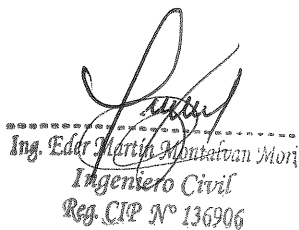 Ing. Eder Martin Montalvan Mori
Ingeniero Civil
Reg. CIP Nº 136906